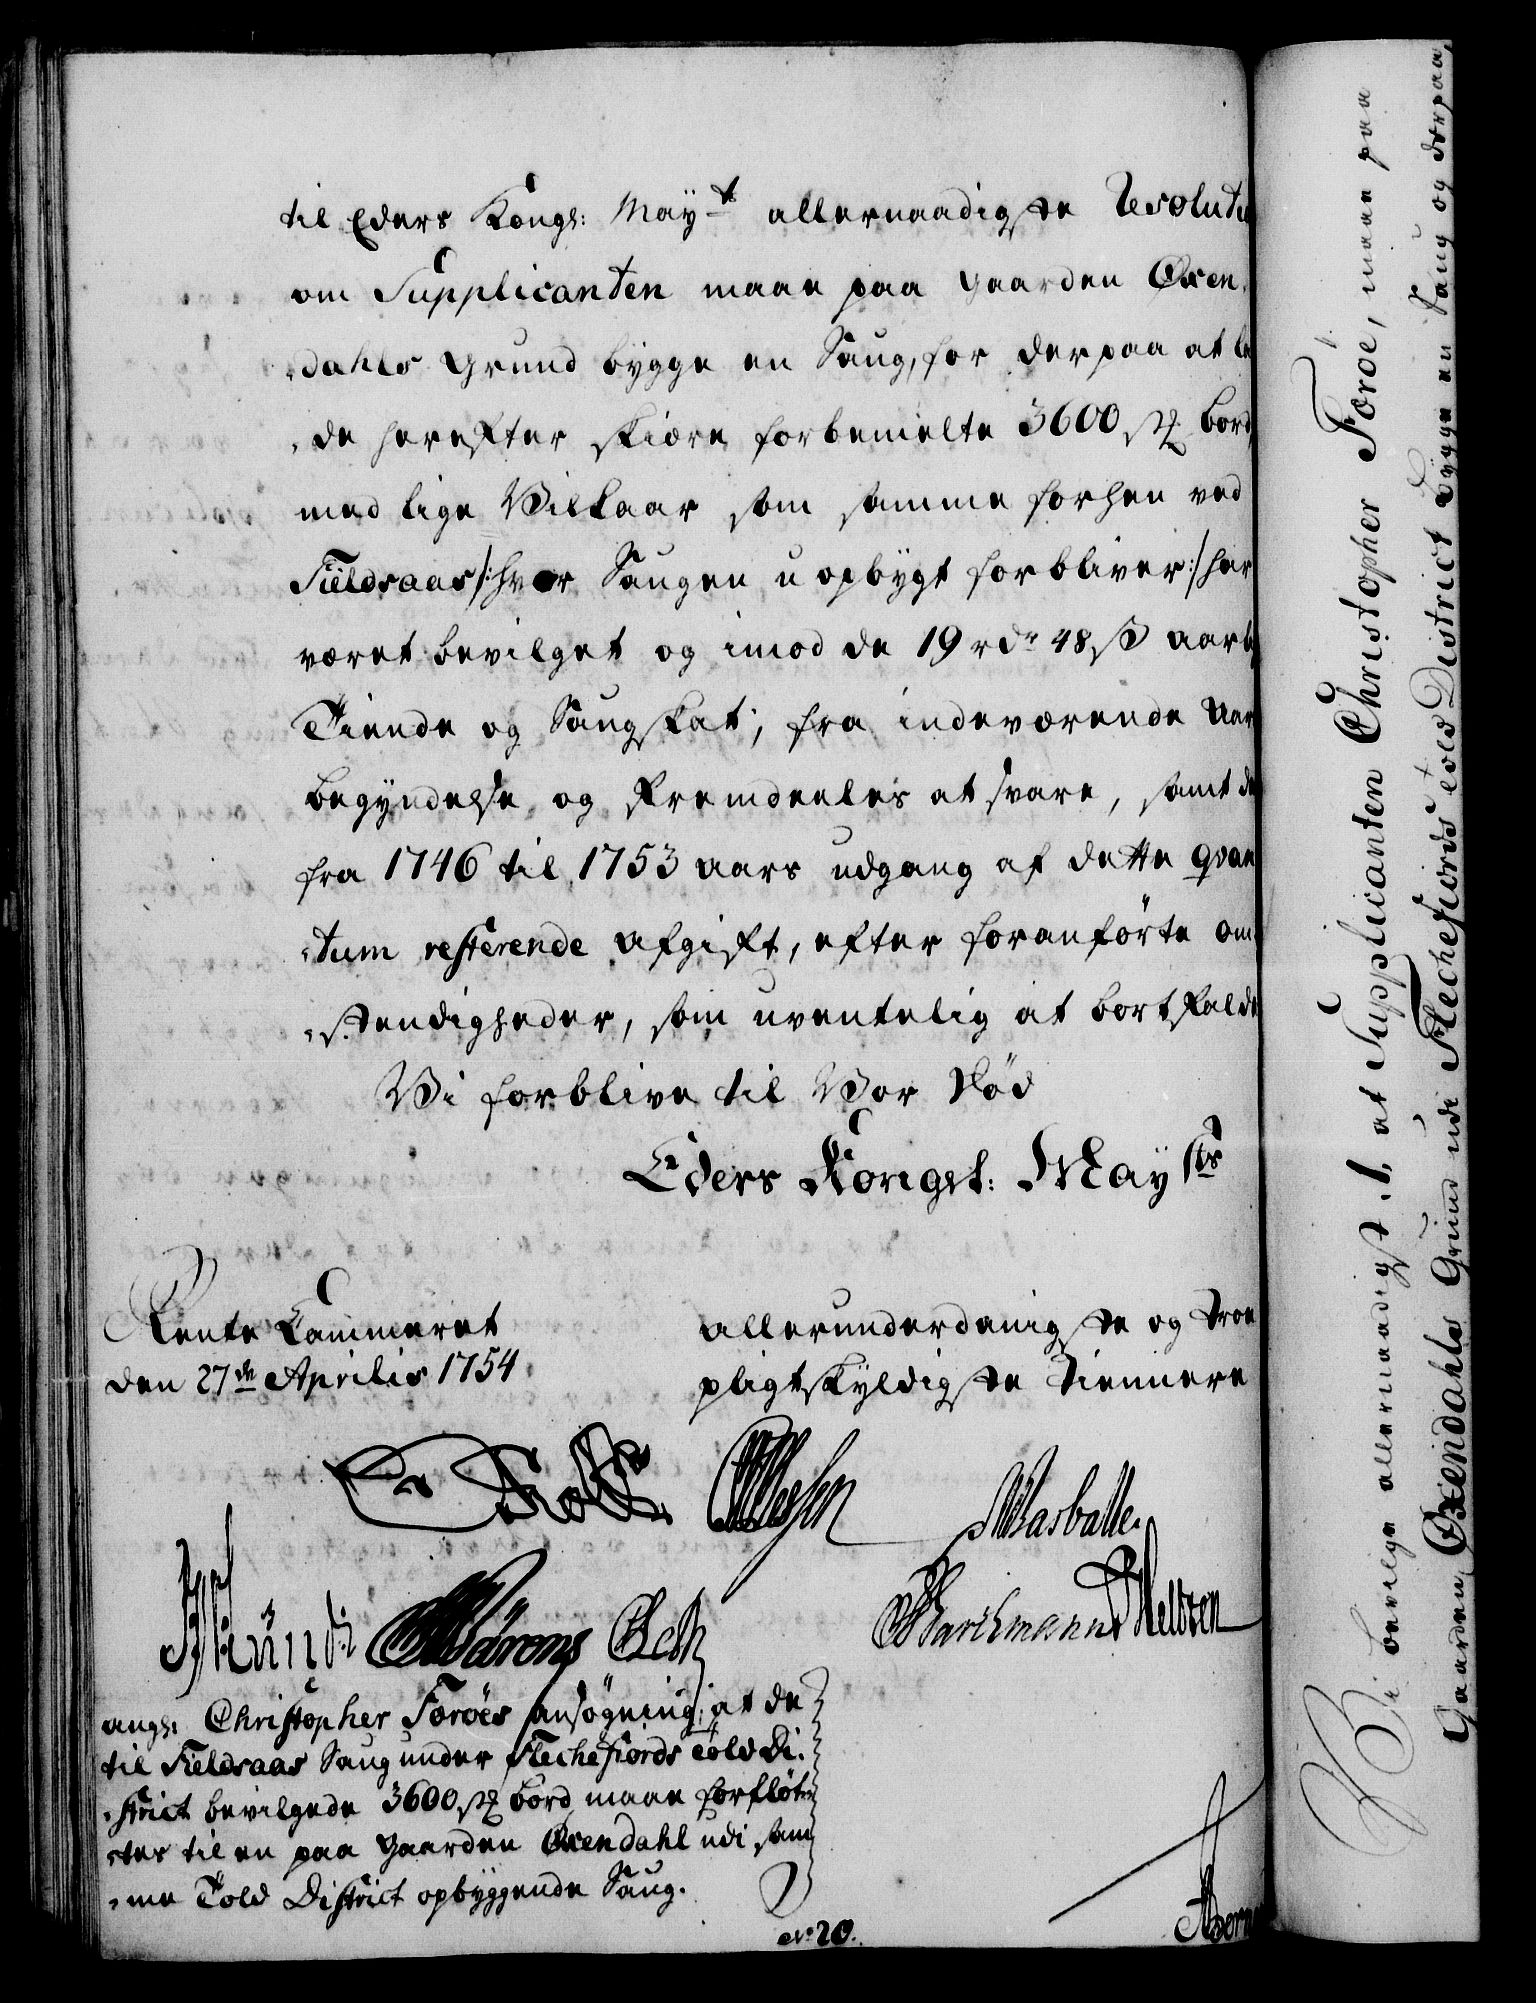 til Eders Kongl: May.t allernaadigste Resoluti
om Supplicanten maae paa Gaarden Oxen„
„dahls Grund bygge en Saug, for derpaa at la
„de herefter skiære forbemelte 3600 st. Bord,
med lige Vilkaar som samme forhen ved
Fieldsaas /: hvor Saugen uopbygt forbliver :/ har
været bevilget og imod de 19 rdr 48 ß aarl
Tiende og Saugskat; fra indeværende Aar
begyndelse og fremdeeles at svare, samt de
fra 1746 til 1753 aars udgang af dette qvan
„tum resterende Afgift, efter foranførte om„
„stendigheder, som uventelig at bortfalde
Vi forblive til Vor Død
Eders Kongel: May.sts
Rente Cammeret
den 27de Aprilis 1754
allerunderdanigste og troe
pligtskyldigste Tiennere
Holst
Barchmann
angl: Christopher Forøes ansøgning, at de
til Fieldsaas Saug under Flechefiords told Di„
„strict bevilgede 3600 st. Bord maae forflöt
„tes til en paa Gaarden Oxendahl udi sam
„me Told District opbyggende Saug.
No 20.
Vi bevilge allernaadigst, at Supplicanten Christopher Foröe, maae paa
Gaarden Oxendahls Grund udi Flechefiords told District bygge en Saug og derpaa